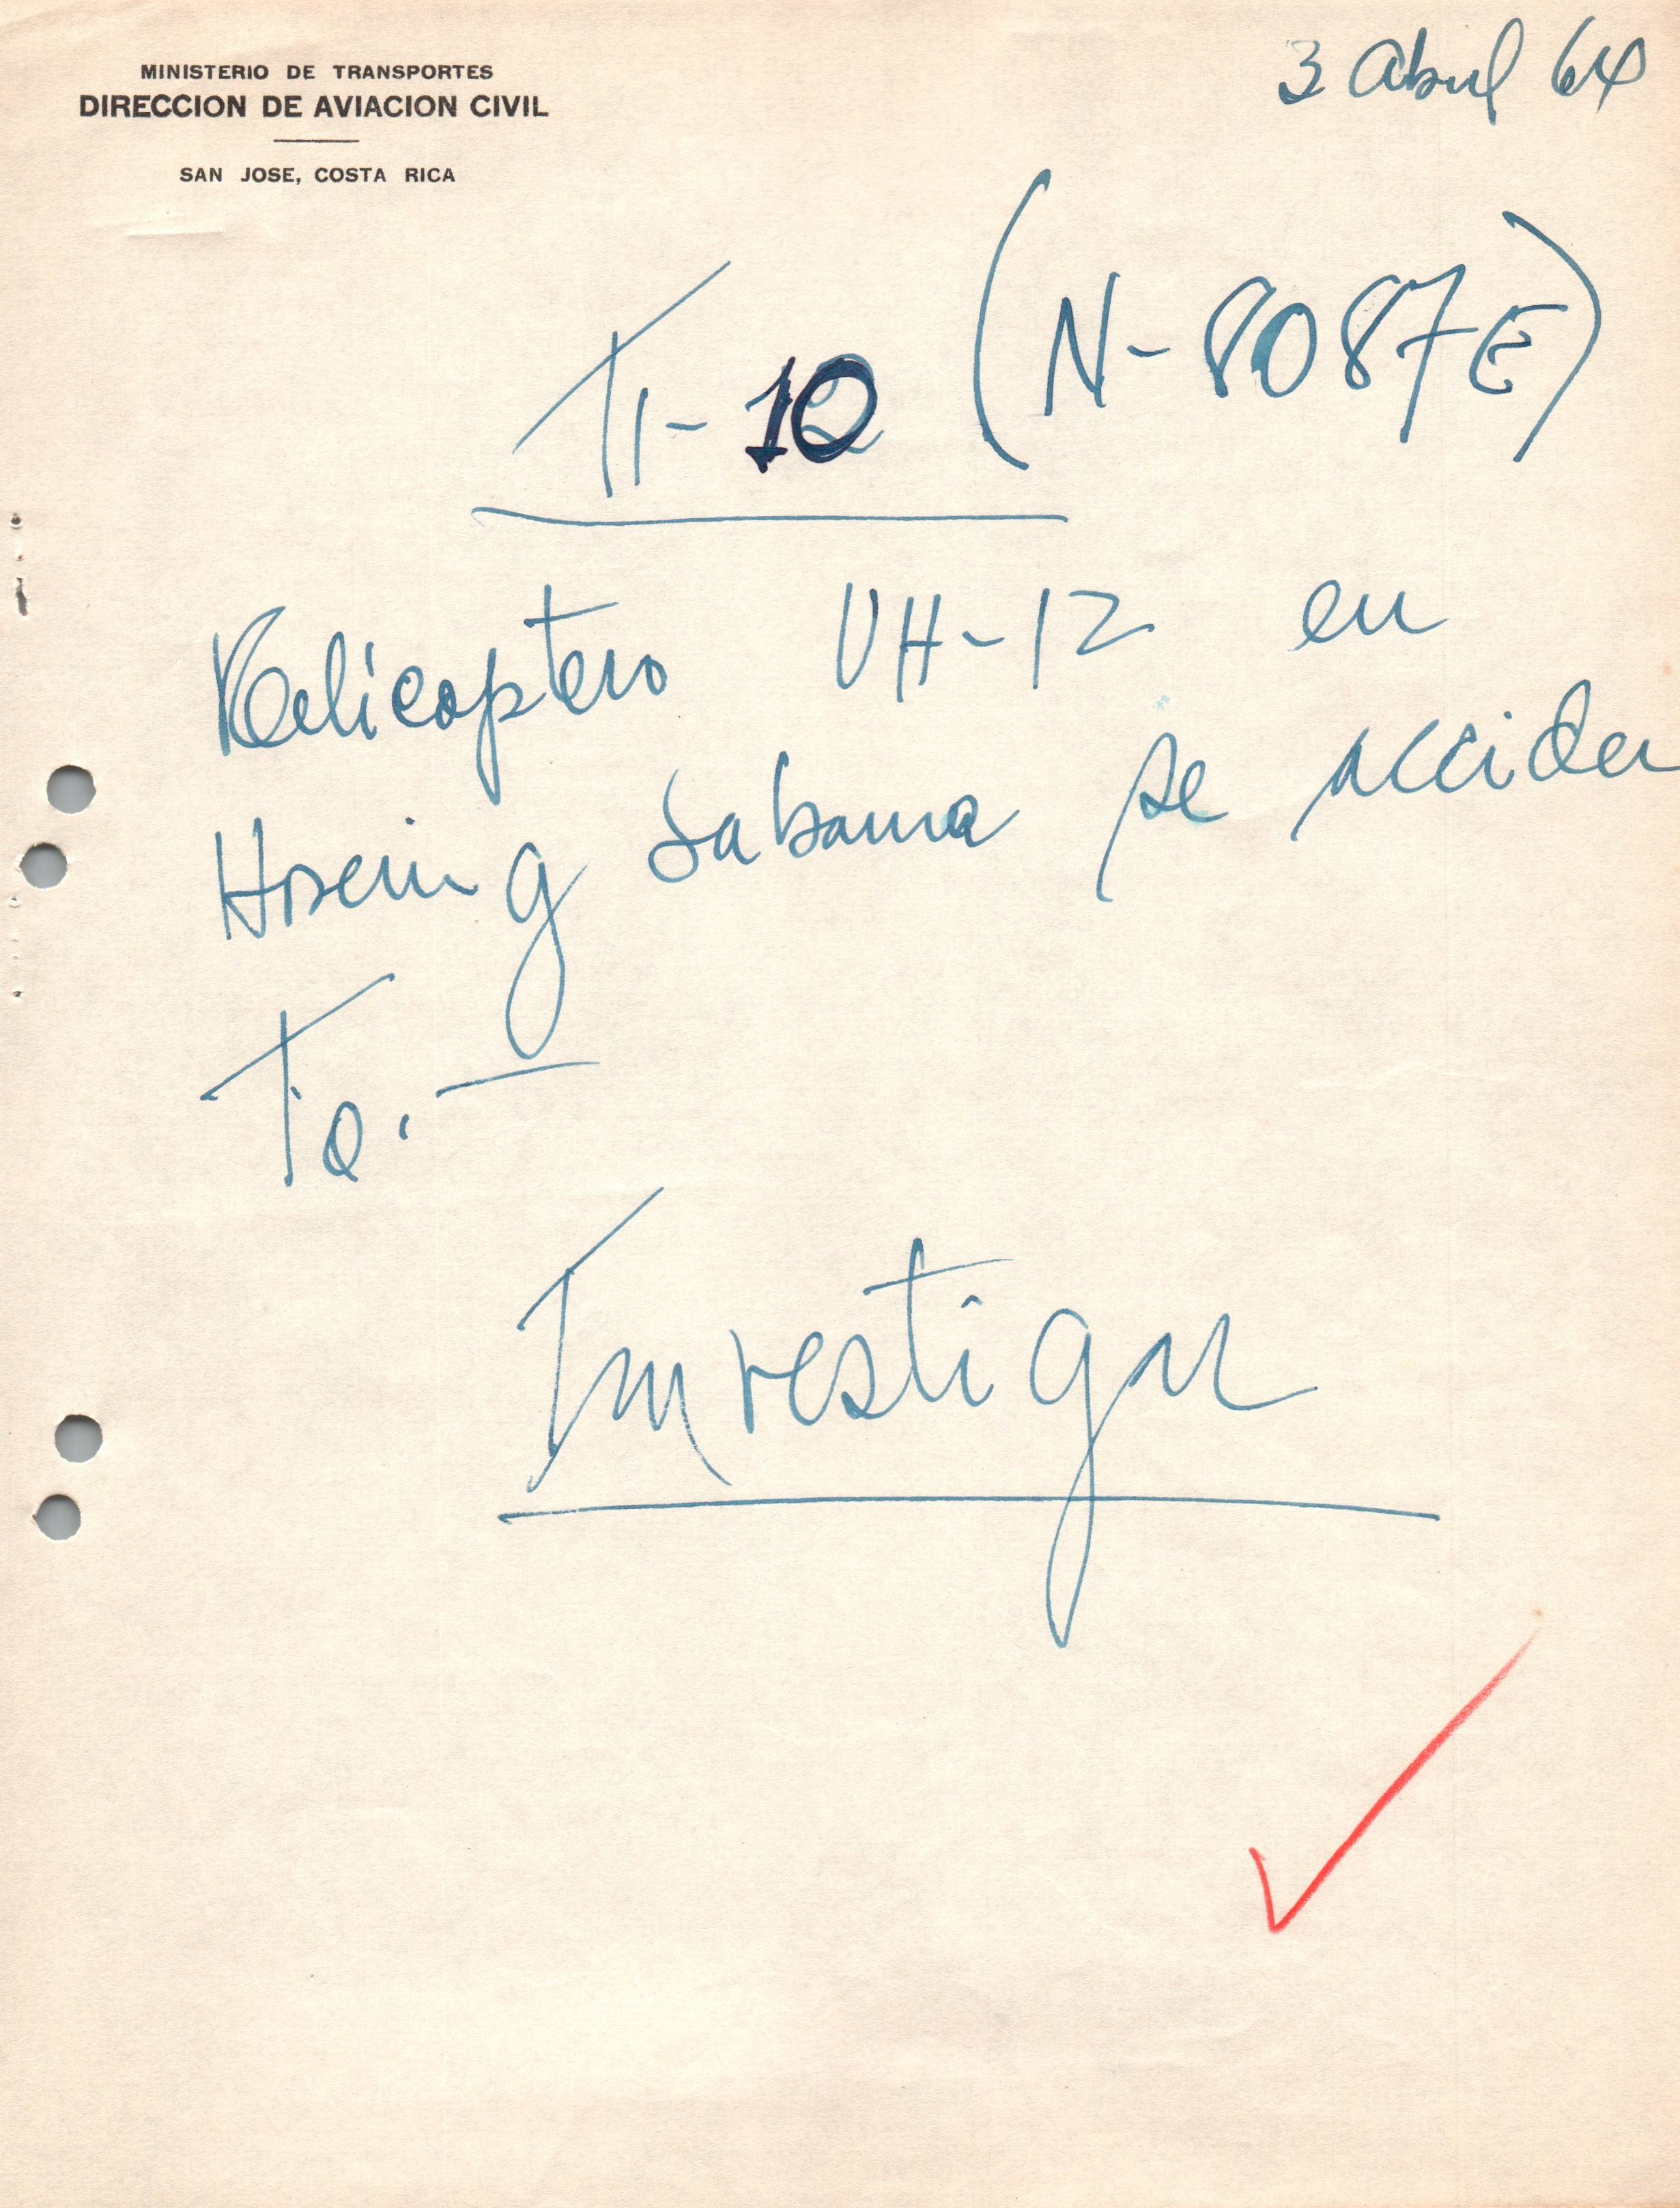 MINISTERIO DE TRANSPORTES
DIRECCION DE AVIACION CIVIL
SAN JOSE, COSTA RICA
3 Abril 64
TI-10 (N-8087E)
Helicoptero UH-12 en
Hovering Sabana se acciden
To.-
Investigar